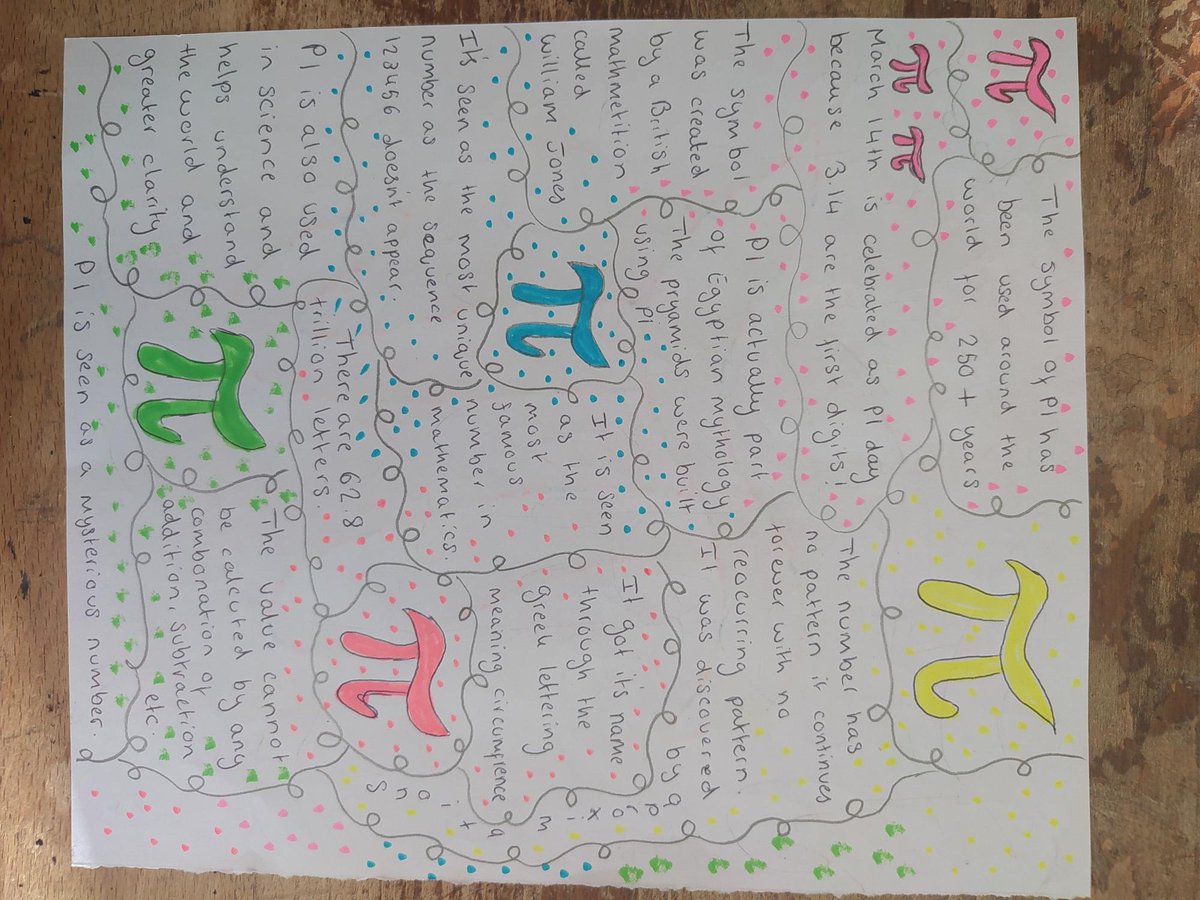 π
π π
π
The symbol of PI has
been used around the
world for 250+ years
March 14th is celebrated as PI day
because 3.14 are the first digits!
The number has
no pattern it continues
forever with no
reocurring pattern.
The symbol
was created
by a British
mathmetition
called
william Jones
PI is actually part
of Egyptian mythology
The pryamids were built
using pi
It was discovered
by aproximations
π
It is seen
as the
most
famous
number in
mathematics
It got it's name
through the
greek lettering
meaning circumfrence
It's seen as the most unique
number as the sequence
123456 doesnt appear.
There are 62.8
trillion letters.
π
PI is also used
in science and
helps understand
the world and
greater clarity
π
The value cannot
be calcuted by any
combonation of
addition, subtraction
etc.
PI is seen as a mysterious number.